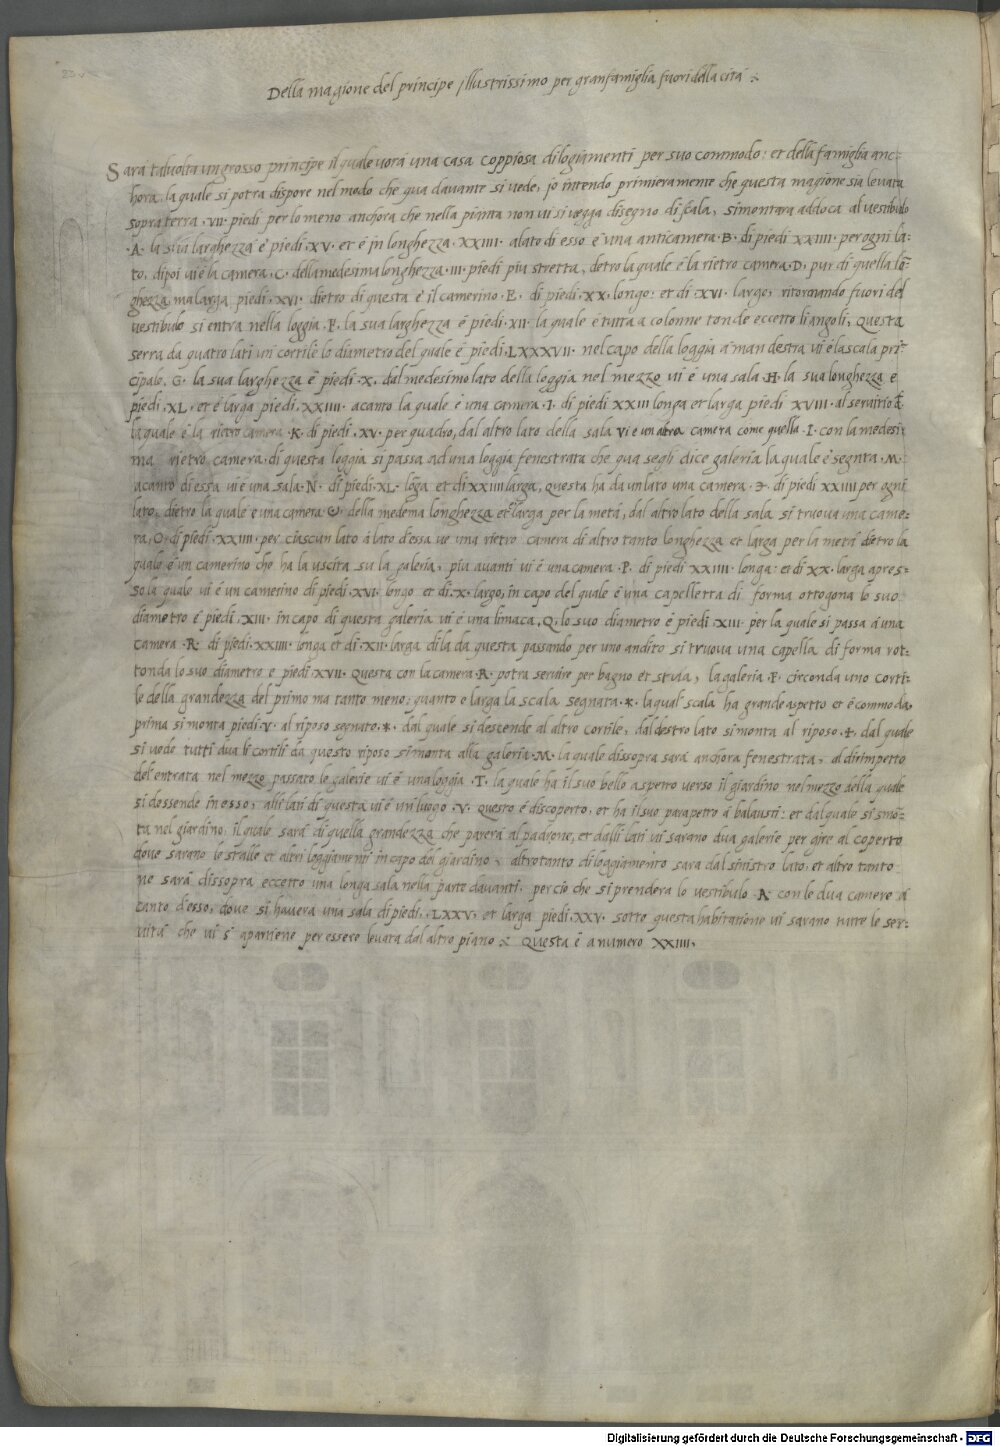 23 v
Della magione del principe Illustrissimo per gran famiglia fuori della cità
Sara talvolta un grosso principe il quale vora una casa coppiosa di logiamenti per suo commodo: et della famiglia anc-
hora. la quale si potra dispore nel modo che qua davante si vede, jo intendo primieramente che questa magione sia levata
sopra terra .VII. piedi per lo meno anchora che nella pianta non vi si vegga disegno di scala, simontara addoca al vestibulo
.A. la sua larghezza è piedi .XV. et è in longhezza .XXIIII. alato di esso è una anticamera .B. di piedi XXIIII. per ogni la-
to, dipoi vi è la camera .C. della medesima longhezza .III. piedi piu stretta, detro la quale è la rietro camera .D, pur di quella lō-
ghezza, ma larga piedi .XVI. dietro di questa è il camerino .E. di piedi .XX. longo: et di .XVI. largo, ritornando fuori del
vestibulo si entra nella loggia .F. la sua larghezza è piedi .XII. la quale è tutta a colonne tonde eccetto li angoli, Questa
serra da quatro lati un cortile lo diametro del quale è piedi .LXXXVII. nel capo della loggia a man destra vi è la scala pri-
cipale. G. la sua larghezza è piedi .X. dal medesimo lato della loggia nel mezzo vi è una sala .H. la sua longhezza è
piedi .XL. et è larga piedi .XXIIII. acanto la quale è una camera .I. di piedi XXIII longa et larga piedi XVIII. al servitio đ
la quale è la rietro camera .K. di piedi .XV. per quadro, dal altro lato della sala vi è un altra camera come quella .I. con la medesi-
ma rietro camera, di questa loggia si passa ad una loggia fenestrata che qua segli dice galeria la quale è segnata .M.
acanto di essa vi è una sala .N. di piedi .XL. lōga et di XXIIII larga, Questa ha da un lato una camera di piedi XXIIII per ogni
lato, dietro la quale è una camera della medema longhezza et larga per la metá, dal altro lato della sala si truova una came-
ra, O, di piedi .XXIIII. per ciascun lato á lato d'essa ve una rietro camera di altro tanto longhezza et larga per la metá dietro la
quale è un camerino che ha la uscita su la galeria, piu avanti vi è una camera .P. di piedi XXIIII. longa: et di XX. larga apres-
so la quale vi è un camerino di piedi .XVI. longo et di .X. largo, in capo del quale è una capelletta di forma ottogona lo suo
diametro è piedi .XIII. in capo di questa galeria vi è una limaca, Q, lo suo diametro è piedi .XIII. per la quale si passa á una
camera .R. di piedi .XXIIII. longa et di .XII. larga di la da questa passando per uno andito si truova una capella di forma rot-
tonda lo suo diametro è piedi .XVII. Questa con la camera .R. potra servire per bagno et stufa, la galeria .F. circonda uno corti-
le della grandezza del primo ma tanto meno, quanto è larga la scala segnata .*. la qual' scala ha grande aspetto et è commoda,
prima si monta piedi .V. al riposo segnato .*. dal quale si descende al altro cortile, dal destro lato si monta al riposo dal quale
si vede tutti dua li cortili da questo riposo si monta alla galeria .M. la quale dissopra sará anchora fenestrata, al dirimpetto
del entrata nel mezzo passato le galerie vi è una loggia .T. la quale ha il suo bello aspetto verso il giardino nel mezzo della quale
si dessende in esso, alli lati di questa vi è un luogo .V. questo è discoperto, et ha il suo parapetto á balausti: et dal quale si smō-
ta nel giardino, il quale sará di quella grandezza che parerá al padrone, et dalli lati vi sarano dua galerie per gire al coperto
dove sarano le stalle et altri loggiamenti in capo del giardino, altrotanto di loggiamento sará dal sinistro lato, et altro tanto
ne sará dissopra eccetto una longa sala nella parte davanti, per cio che si prendera lo vestibulo .A. con le dua camere á
canto d'esso, dove si havera una sala di piedi .LXXV. et larga piedi .XXV. sotto questa habitatione vi sarano tutte le ser-
vitá che vi s'apartiene per essere levata dal altro piano Questa è a numero XXIIII.
Digitalisierung gefördert durch die Deutsche Forschungsgemeinschaft - DFG